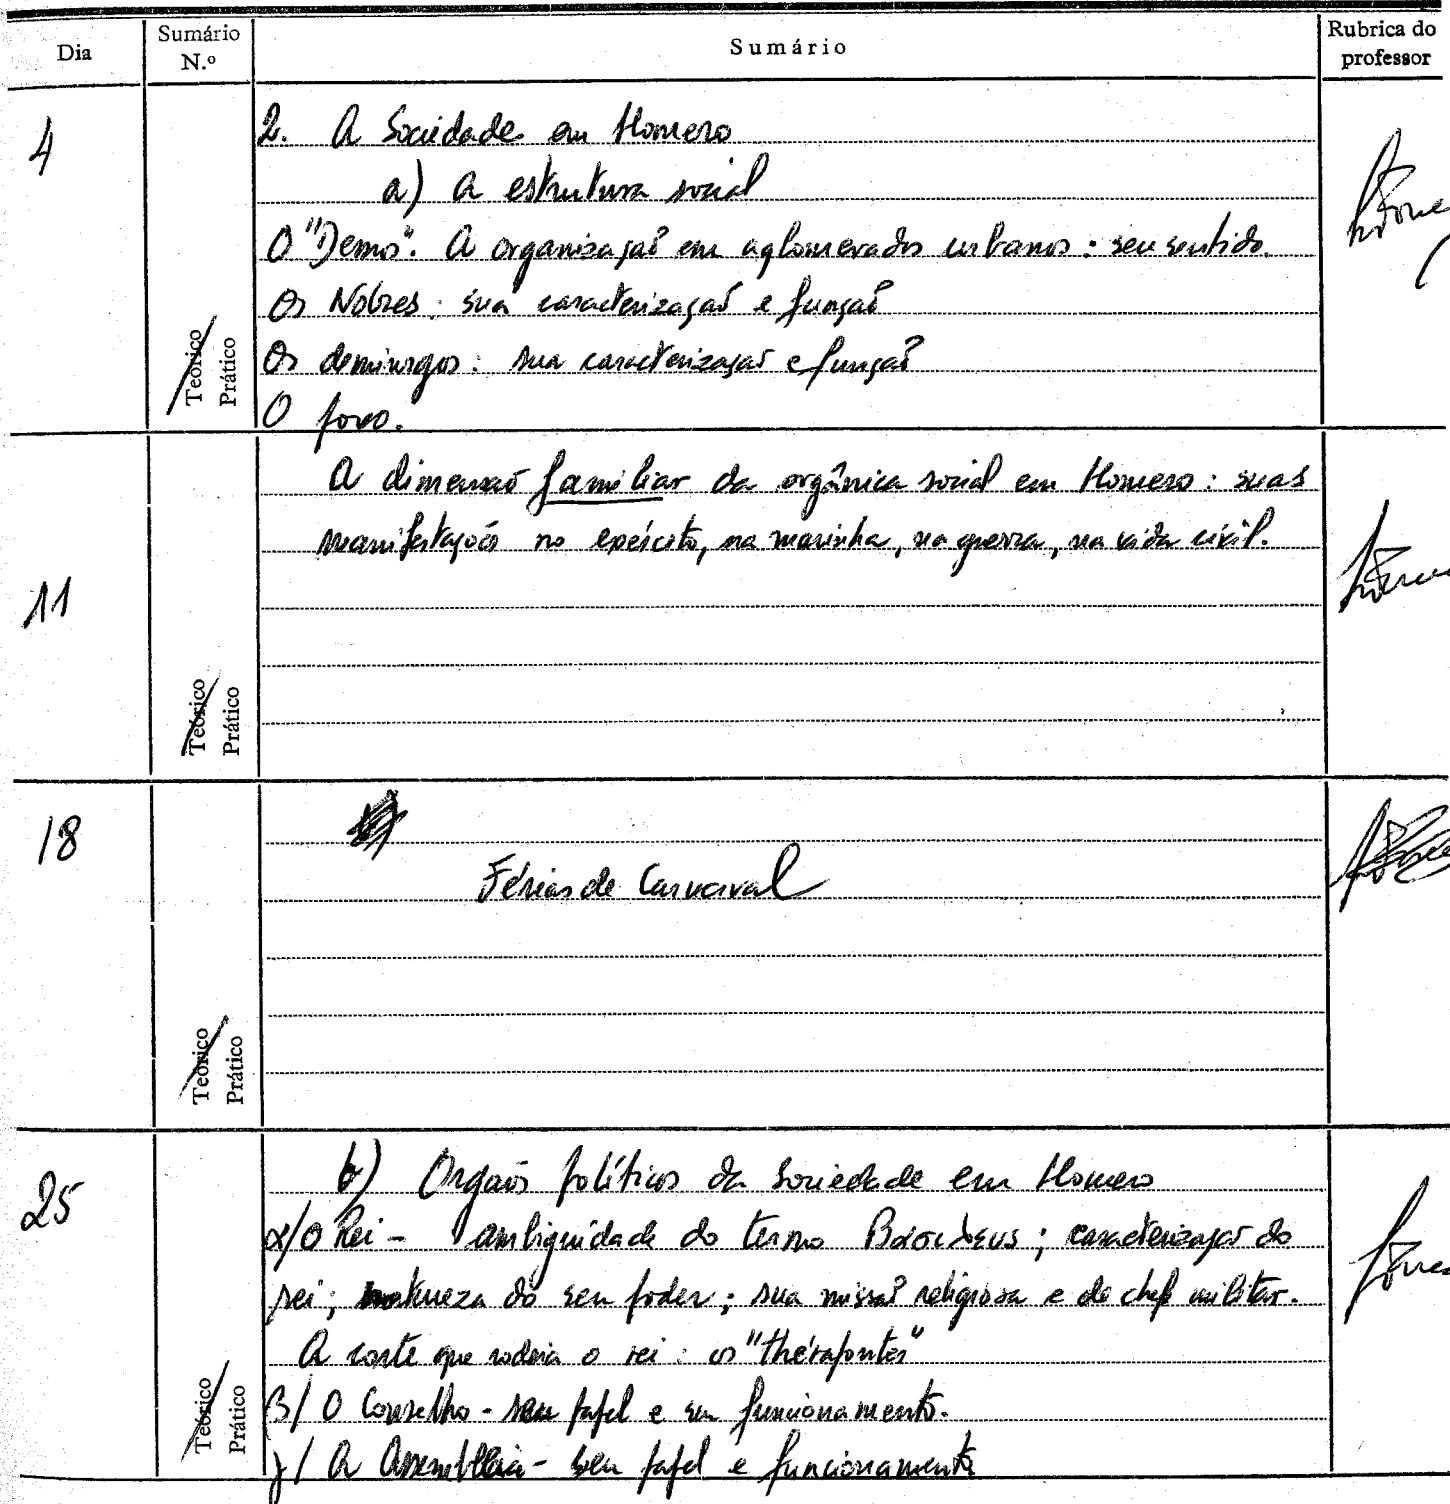 Dia
Sumário N.º
Sumário
Rubrica do professor
4
2. A Sociedade em Homero
a) A estrutura social
O "Demos". A organização em aglomerados urbanos: seu sentido.
Os Nobres: sua caracterização e função
Os demiurgos: sua caracterização e função
O povo.
Teórico
Prático
11
A dimensão familiar da orgânica social em Homero: suas
manifestações no exército, na marinha, na guerra, na vida civil.
Teórico
Prático
18
Férias de Carnaval
Teórico
Prático
25
b) Orgãos políticos da Sociedade em Homero
α/ O Rei - ambiguidade do termo Βασιλεus; caracterização do
rei; natureza do seu poder; sua missão religiosa e de chefe militar.
A corte que rodeia o rei: os "thérapontes"
β/ O Conselho - seu papel e seu funcionamento.
γ/ A Assembleia - seu papel e funcionamento
Teórico
Prático